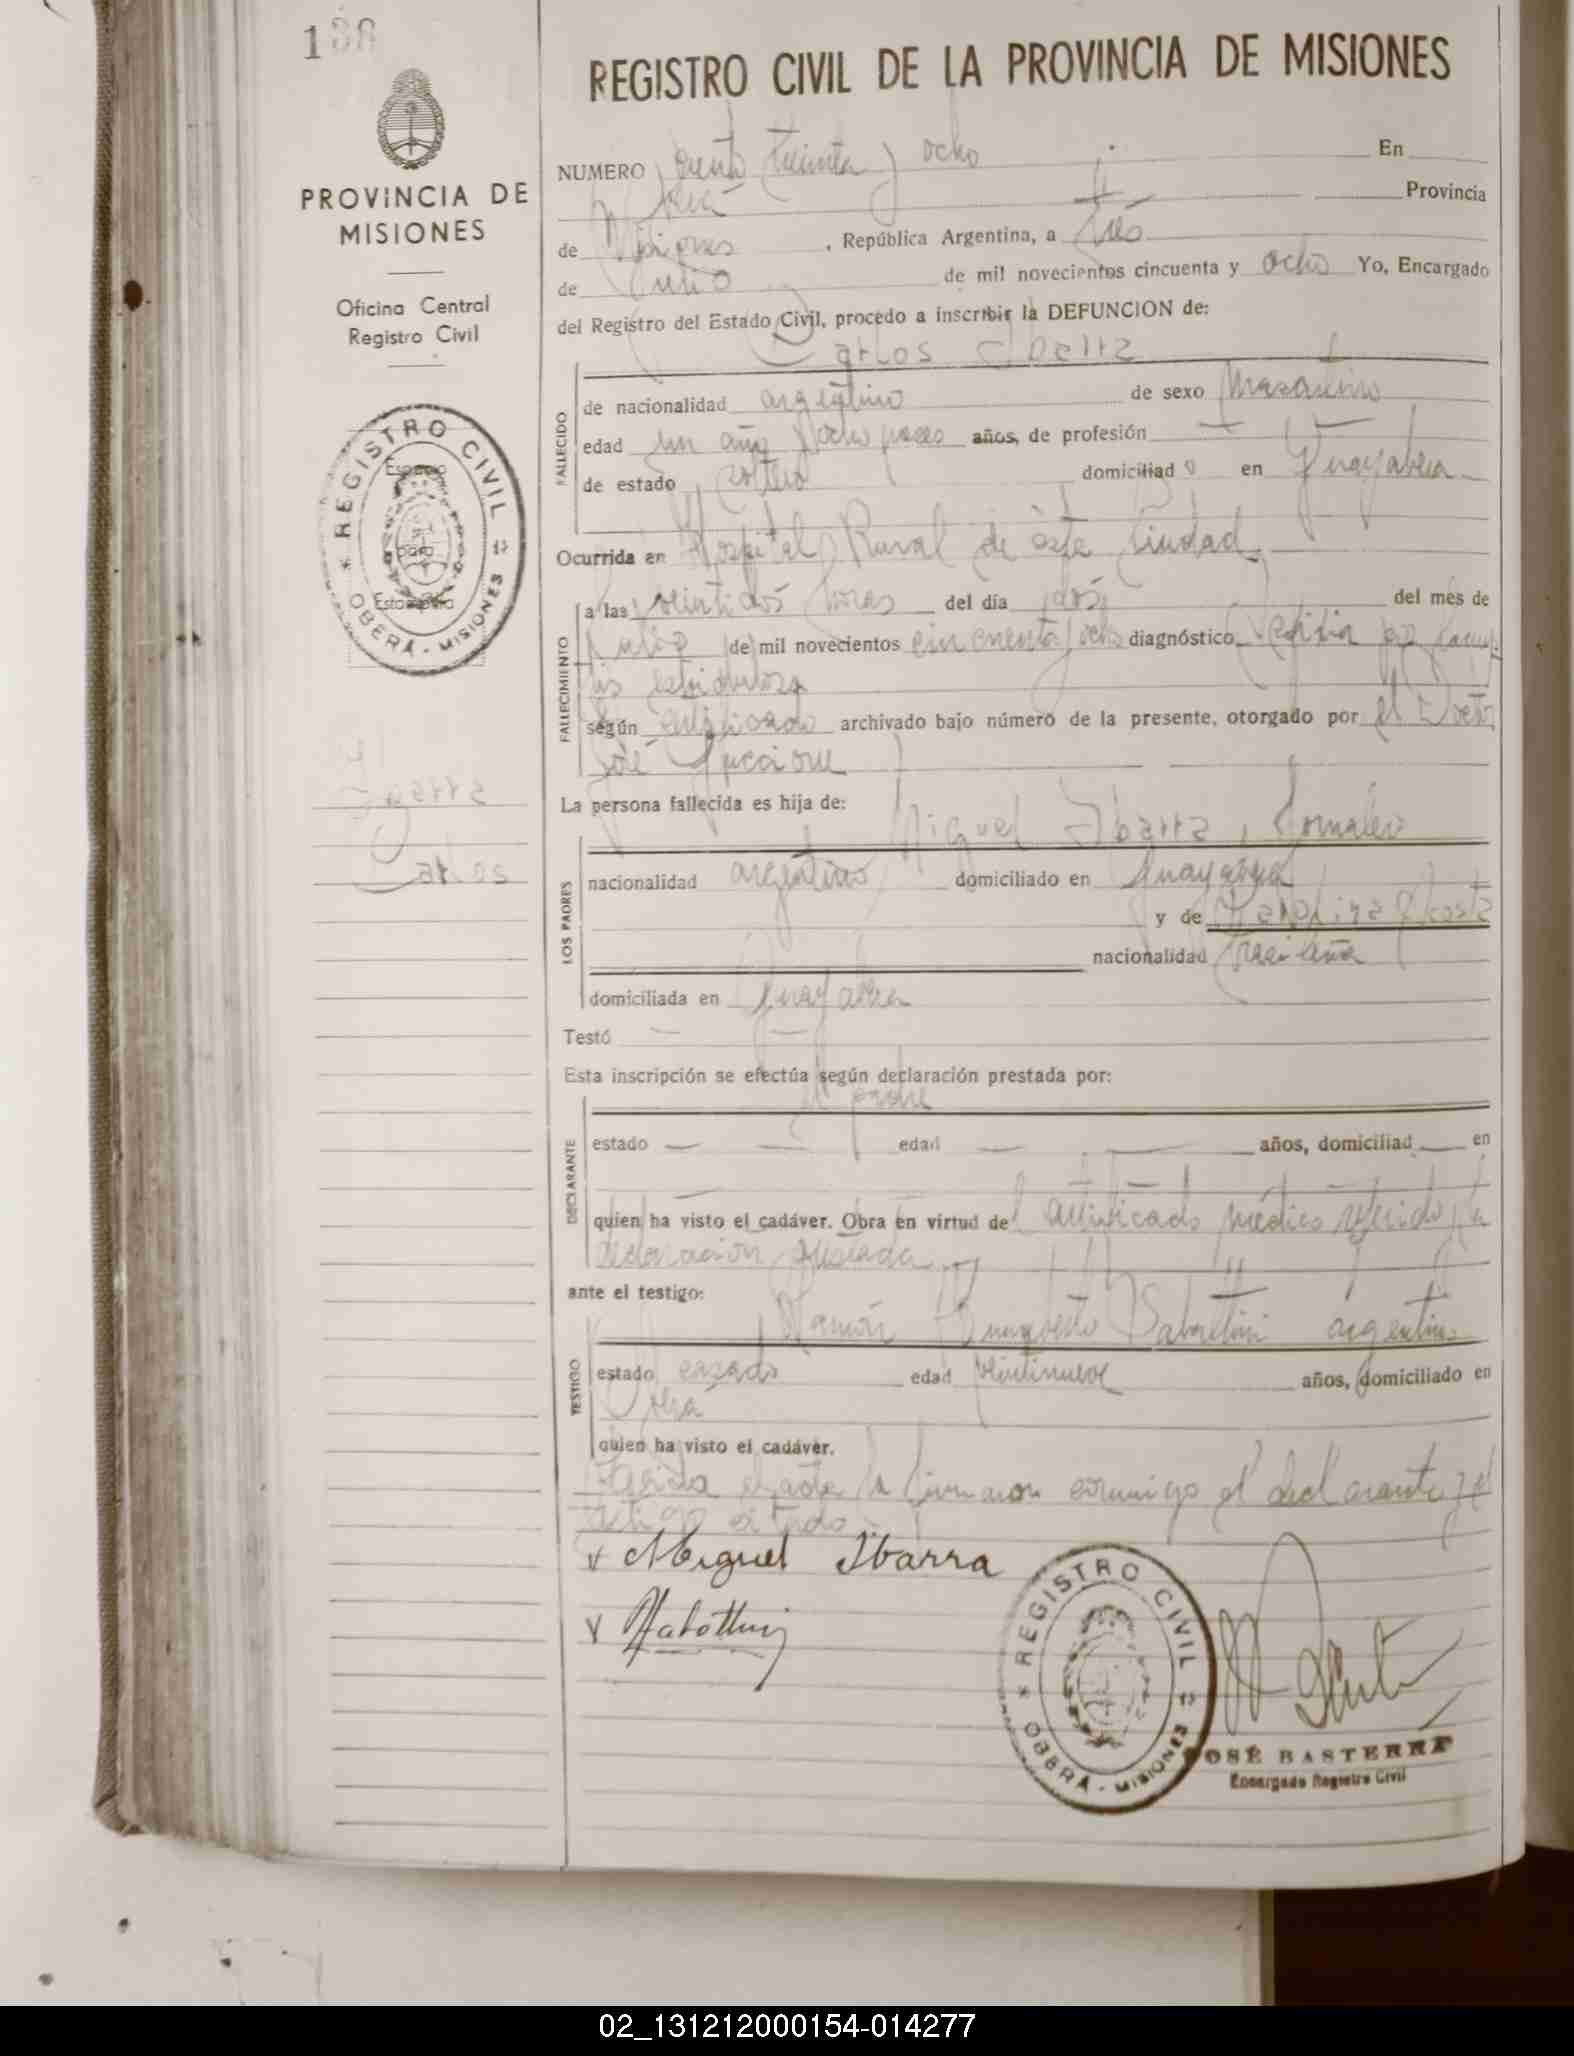 138
PROVINCIA DE
MISIONES
Oficina Central
Registro Civil
* REGISTRO CIVIL *
OBERÁ - MISIONES
Espacio
para
Estampilla
Ibarra
Carlos
REGISTRO CIVIL DE LA PROVINCIA DE MISIONES
NUMERO ciento treinta y ocho En
Oberá Provincia
de Misiones , República Argentina, a tres
de Julio de mil novecientos cincuenta y ocho Yo, Encargado
del Registro del Estado Civil, procedo a inscribir la DEFUNCION de:
Carlos Ibarra
FALLECIDO
de nacionalidad argentino de sexo masculino
edad un año ocho meses años, de profesión
de estado soltero domiciliado en Guayabera
Ocurrida en Hospital Rural de esta Ciudad
FALLECIMIENTO
a las veintidós horas del día dos
del mes de
Julio de mil novecientos cincuenta y ocho diagnóstico
según certificado archivado bajo número de la presente, otorgado por el Doctor
José
La persona fallecida es hija de:
Miguel Ibarra,
LOS PADRES
nacionalidad argentino domiciliado en Guayabera
y de Acosta
nacionalidad brasileña
domiciliada en Guayabera
Testó
Esta inscripción se efectúa según declaración prestada por:
el padre
DECLARANTE
estado edad años, domiciliad en
quien ha visto el cadáver. Obra en virtud del certificado médico referido y la
declaración prestada
ante el testigo:
Ramón Humberto argentino
TESTIGO
estado casado edad veintinueve años, domiciliado en
Oberá
quien ha visto el cadáver.
Leída el acta la firmaron conmigo el declarante y el
testigo citado.
Miguel Ibarra
* REGISTRO CIVIL *
OBERÁ - MISIONES
JOSÉ BASTERRA
Encargado Registro Civil
02_131212000154-014277